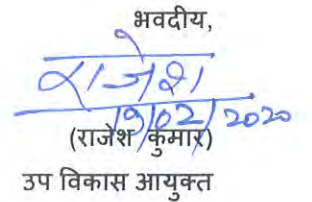 भवदीय,
राजेश
19/02/2020
(राजेश कुमार)
उप विकास आयुक्त